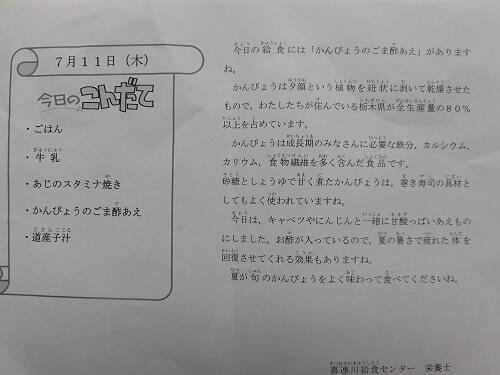 7月11日(木)
今日のこんだて
・ごはん
・牛乳
・あじのスタミナ焼き
・かんぴょうのごま酢あえ
・道産子汁
今日の給食には「かんぴょうのごま酢あえ」があります
ね。
かんぴょうは夕顔という植物を紐状に剥いて乾燥させた
もので、わたしたちが住んでいる栃木県が全生産量の80%
以上を占めています。
かんぴょうは成長期のみなさんに必要な鉄分、カルシウム、
カリウム、食物繊維を多く含んだ食品です。
砂糖としょうゆで甘く煮たかんぴょうは、巻き寿司の具材と
してもよく使われていますね。
今日は、キャベツやにんじんと一緒に甘酸っぱいあえもの
にしました。お酢が入っているので、夏の暑さで疲れた体を
回復させてくれる効果もありますね。
夏が旬のかんぴょうをよく味わって食べてくださいね。
喜連川給食センター 栄養士